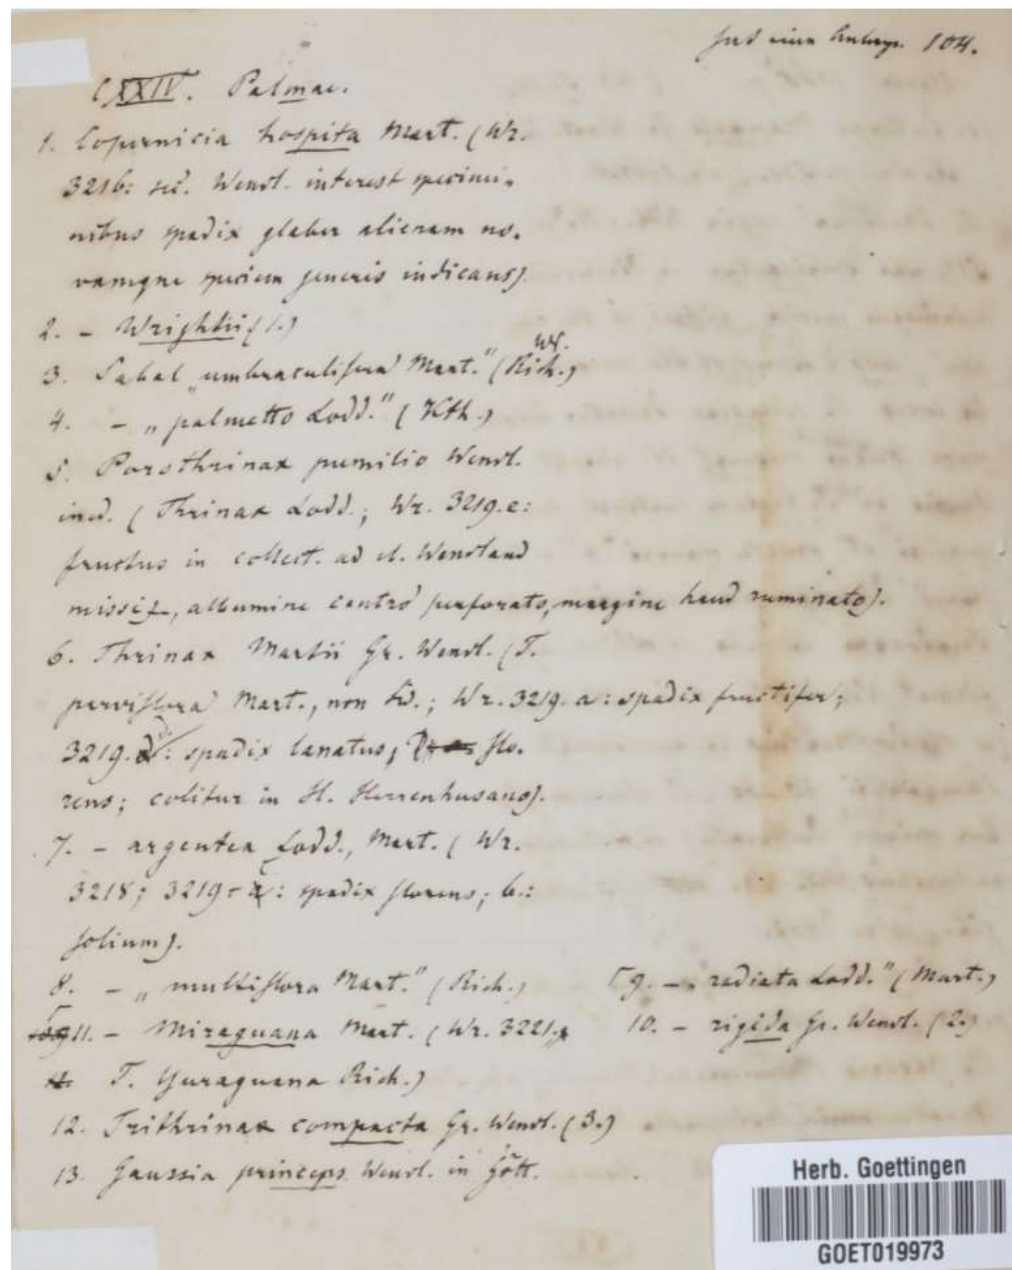 104.
CXXIV. Palmae.
1. Copernicia hospita Mart. (Wr.
3216: sec. Wendl. interest specimi-
nibus spadix glaber alienam no-
vamque speciem generis indicans).
2. - Wrightii (1.)
3. Sabal „umbraculifera Mart." (Rich.) Wr.
4. - „palmetto Lodd." (Kth.)
5. Porothrinax pumilio Wendl.
ined. (Thrinax Lodd.; Wr. 3219.e:
fructus in collect. ad cl. Wendland
missis, albumine centro perforato, margine haud ruminato).
6. Thrinax Martii Gr. Wendl. (T.
parviflora Mart., non Sw.; Wr. 3219. a: spadix fructifer;
3219. d: spadix lanatus, flo-
rens; colitur in H. Herrenhusano).
7. - argentea Lodd., Mart. (Wr.
3218; 3219 : spadix florens; b.:
folium).
8. - „multiflora Mart." (Rich.) 9. - „radiata Lodd." (Mart.)
11. - Miraguana Mart. (Wr. 3221. 10. - rigida Gr. Wendl. (2.)
T. Yuraguana Rich.)
12. Trithrinax compacta Gr. Wendl. (3.)
13. Gaussia princeps Wendl. in Gött.
Herb. Goettingen
GOET019973